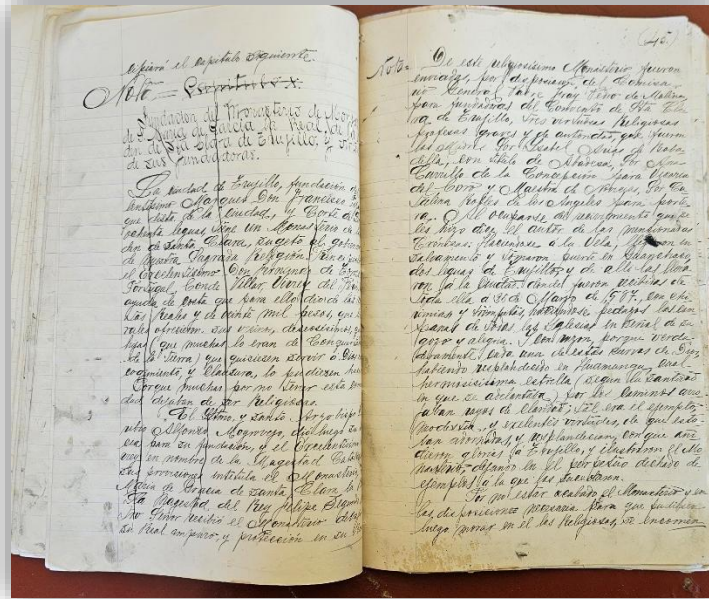 copiará el capítulo siguiente.
Nota = Capitulo X.
Fundacion del Monasterio de Monjas
de Sta. Maria de Gracia la Real de la Or
den de Sta Clara de Trujillo, y
de sus fundadoras.
La ciudad de Trujillo, fundacion
Marques Don Francisco
que dista de la Ciudad, y Corte de
ochenta leguas, tiene un Monasterio de la
den de Santa Clara, sugeto al gobierno
de nuestra Sagrada Religion.
el Excelentisimo Don Fernando de Torres
Portugal, Conde Villar, Virey del
ayuda de costa que para ello dió de las
tas Reales y de veinte mil pesos, que
ofrecieron sus vecinos, deseosisimos
hijas que muchas lo eran de Conquis
de la Tierra, que quisiesen servir á Dios
cogimiento, y Clausura, lo pudiesen
Porque muchas por no tener esta
dejaban de ser Religiosas.
El Iltmo. y Santo Arzobispo
Alfonso Mogrovejo, dió luego
para su fundacion, y el Excelentisimo
rey en nombre de la Magestad
sus provisiones intitula el Monasterio
Maria de Gracia de Santa Clara la
La Magestad del Rey Felipe Segundo
tro Señor recibió el Monasterio debajo
su Real amparo, y protección en su
(45.)
Nota = De este religiosísimo Monasterio fueron
enviadas, por disposicion del Comisa
rio General Padre Fray Pedro de Molina
para fundadoras del Convento de Sta Cla
ra de Trujillo, tres virtuosas Religiosas
profesas graves y de autoridad, que fueron
las Madres Sor Isabel
con titulo de Abadesa, Sor Ana
Carrillo de la Concepcion para Vicaria
del Coro y Maestra de Monjas, Sor Ca
talina Robles de los Angeles para porte
ra. Al ocuparse del recibimiento que se
les hizo dice el autor de las mencionadas
Crónicas: Haciendose á la Vela, llegaron en
salvamento y tomaron puerto en Guanchaco,
dos leguas de Trujillo, y de allí las lleva
ron á la Ciudad donde fueron recibidas de
toda ella á 31 de Marzo de 1587, con chi
rimias y trompetas, haciendose pedazos las cam
panas de todas las Iglesias en señal de su
gozo y alegria. I con razon, porque verda
deramente, cada una de estas siervas de Dios,
habiendo resplandecido en Huamanga, cual
hermosisima estrella (segun la santidad
en que se adelantaba) por los caminos arro
jaban rayos de claridad; tál era el ejemplo,
modestia, y exelentes virtudes, de que esta
ban adornadas, y resplandecian, con que aña
dieron glorias á Trujillo, y ilustraron el Mo
nasterio, dejando en él perpetuo dechado de
ejemplos á la que les sucedieran.
Por no estar acabado el Monasterio y en
las disposiciones necesaria para que pudiesen
luego morar en él las Religiosas, se encomen